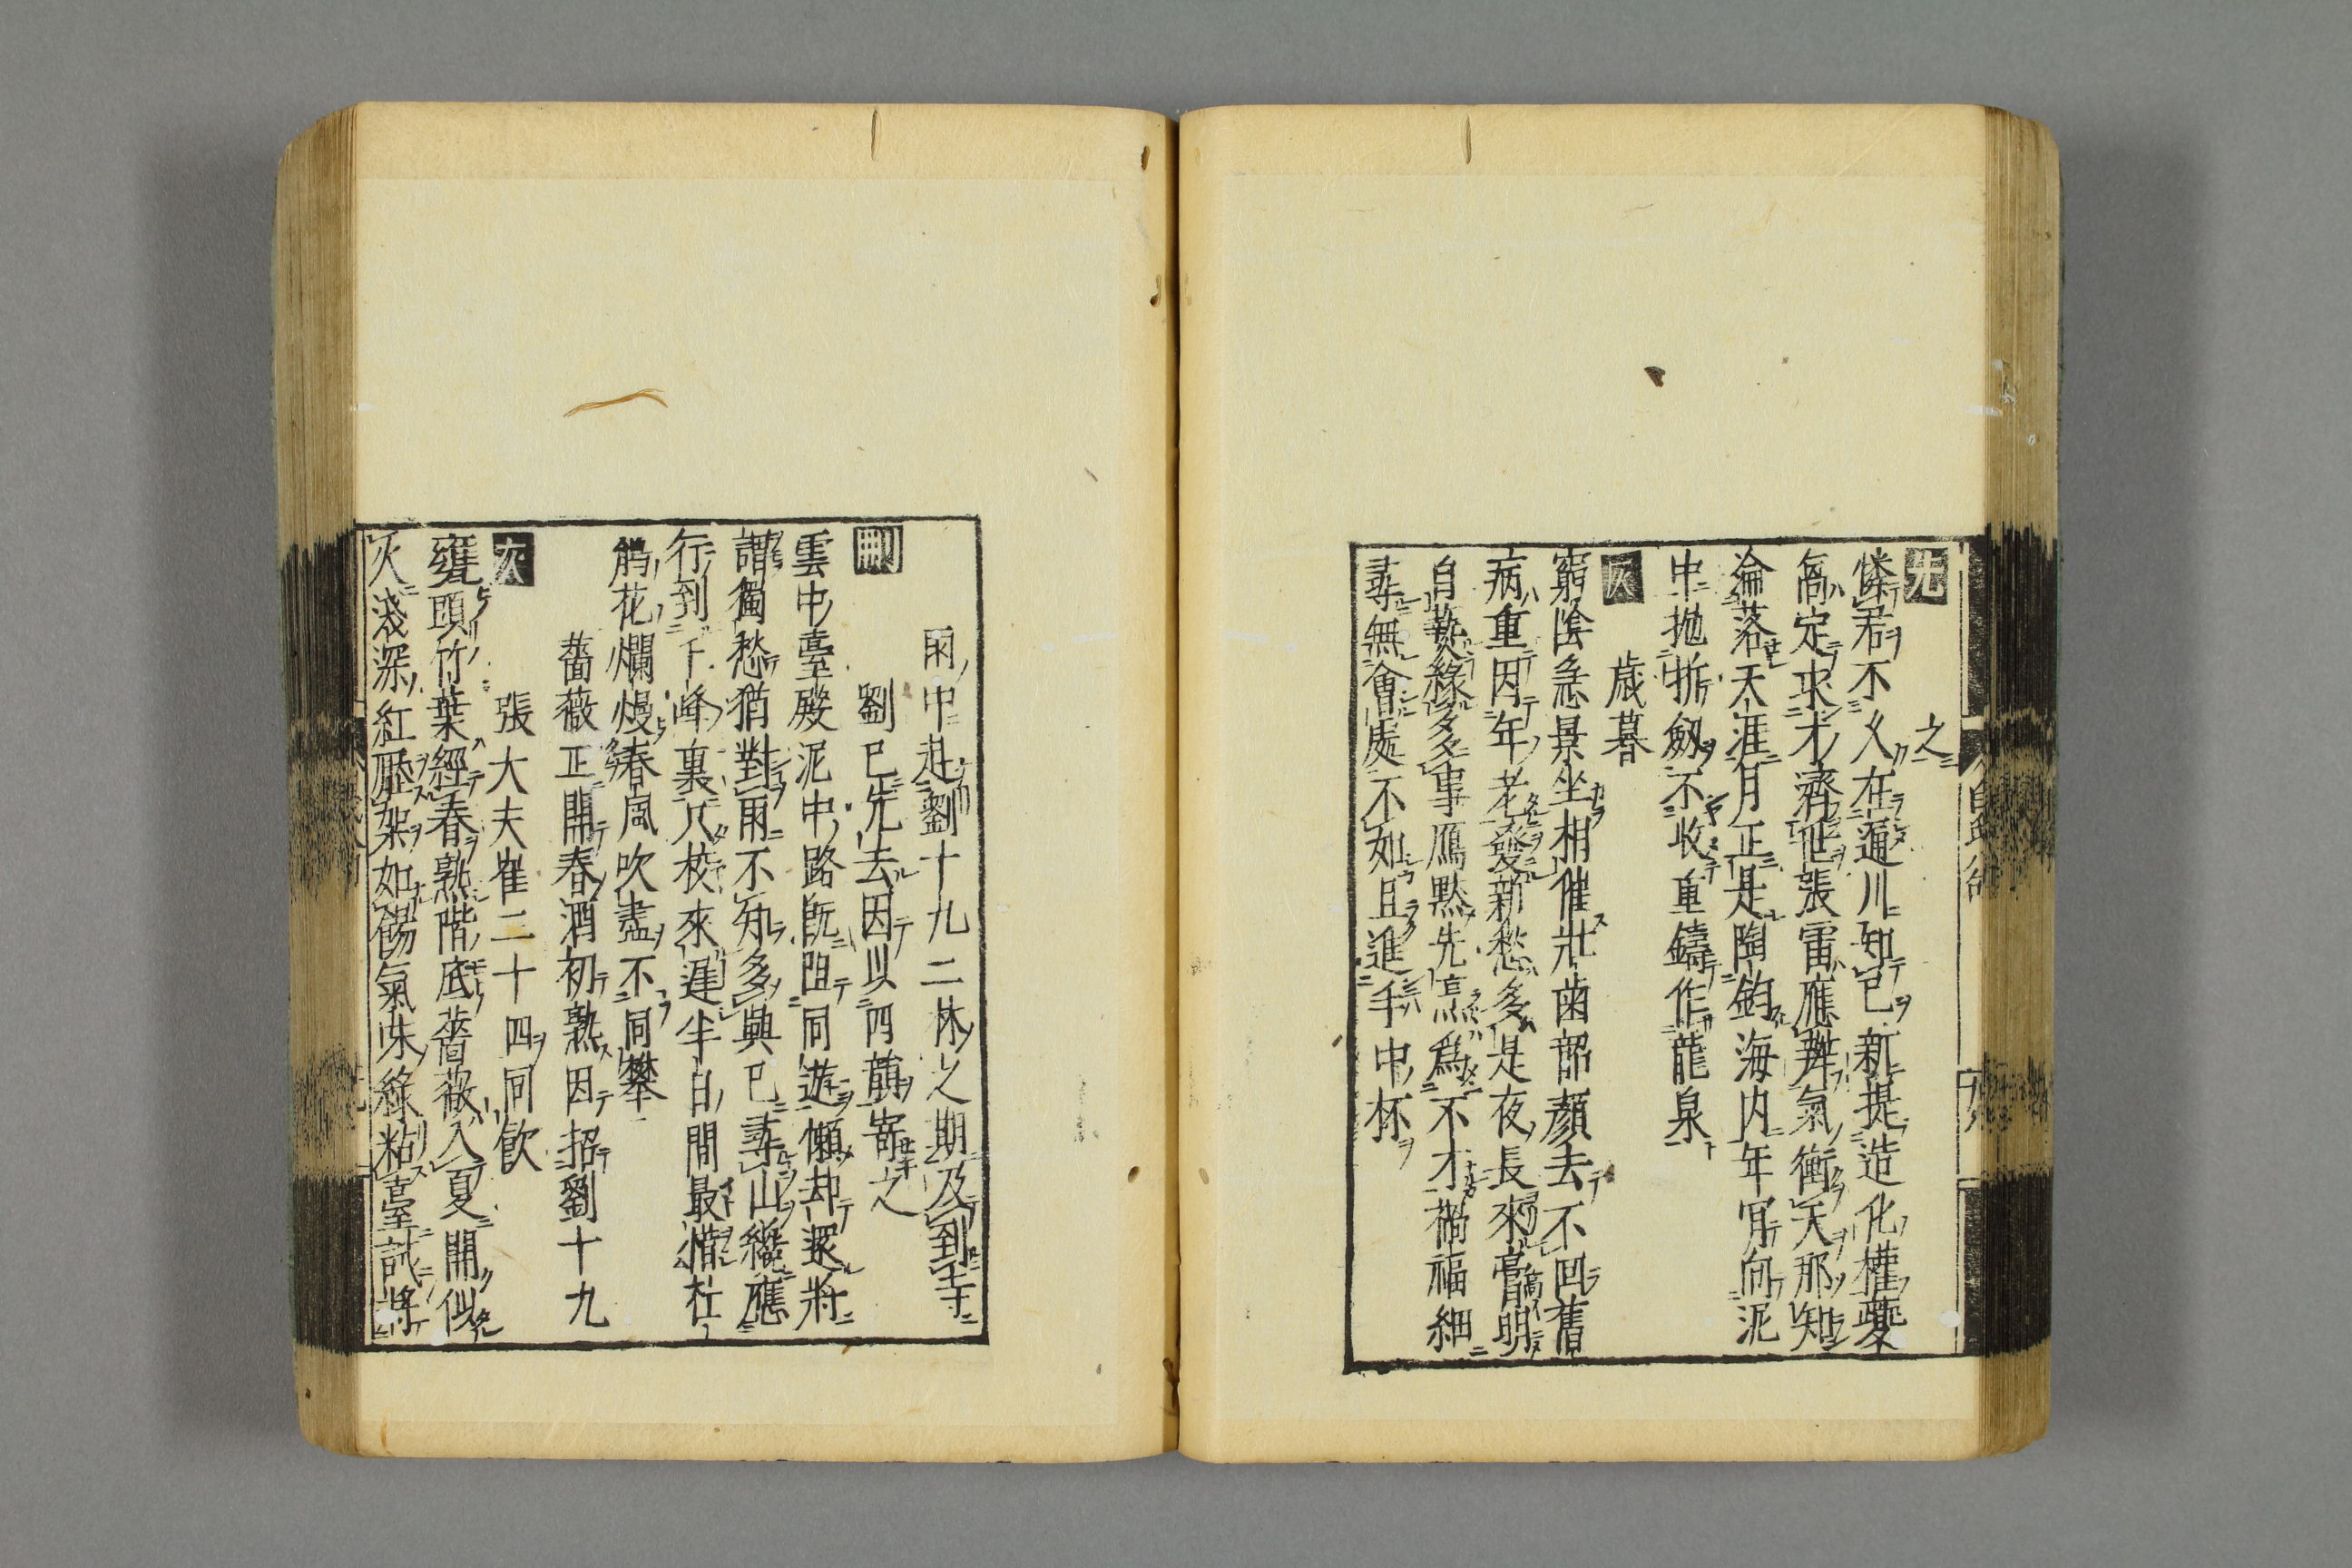 先
之
憐君不久在通川知已新提造化權夔
卨定求才濟世張雷應辨氣衝天那知
淪落天涯月正是陶鈞海内年肎向泥
中抛折劒不收重鑄作龍泉
灰
歳暮
窮陰急景坐相催壯齒韶顔去不回舊
病重因年老發新愁多是夜長來膏明
自爇緣多事鴈黙先烹爲不才禍福細
尋無會處不如且進手中杯
雨中赴劉十九二林之期及到寺
刪
劉已先去因以四韻寄之
雲中臺殿泥中路既阻同遊懶却還將
謂獨愁猶對雨不知多興已尋山纔應
行到千峰裏只校來遲半日間最惜杜
鵑花爛熳春風吹盡不同攀
薔薇正開春酒初熟因招劉十九
灰
張大夫崔二十四同飲
甕頭竹葉經春熟階底薔薇入夏開似
火淺深紅壓架如餳氣味綠粘臺試將